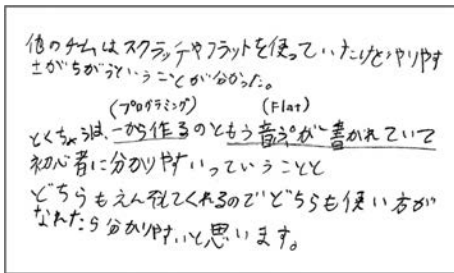 他のチームはスクラッチやフラットを使っていたけどやりやす
さがちがうということが分かった。
(プログラミング) (Flat)
とくちょうは、一から作るのともう音ぷが書かれていて
初心者に分かりやすいっていうことと
どちらもえんそしてくれるのでどちらも使い方が
なれたら分かりやすいと思います。